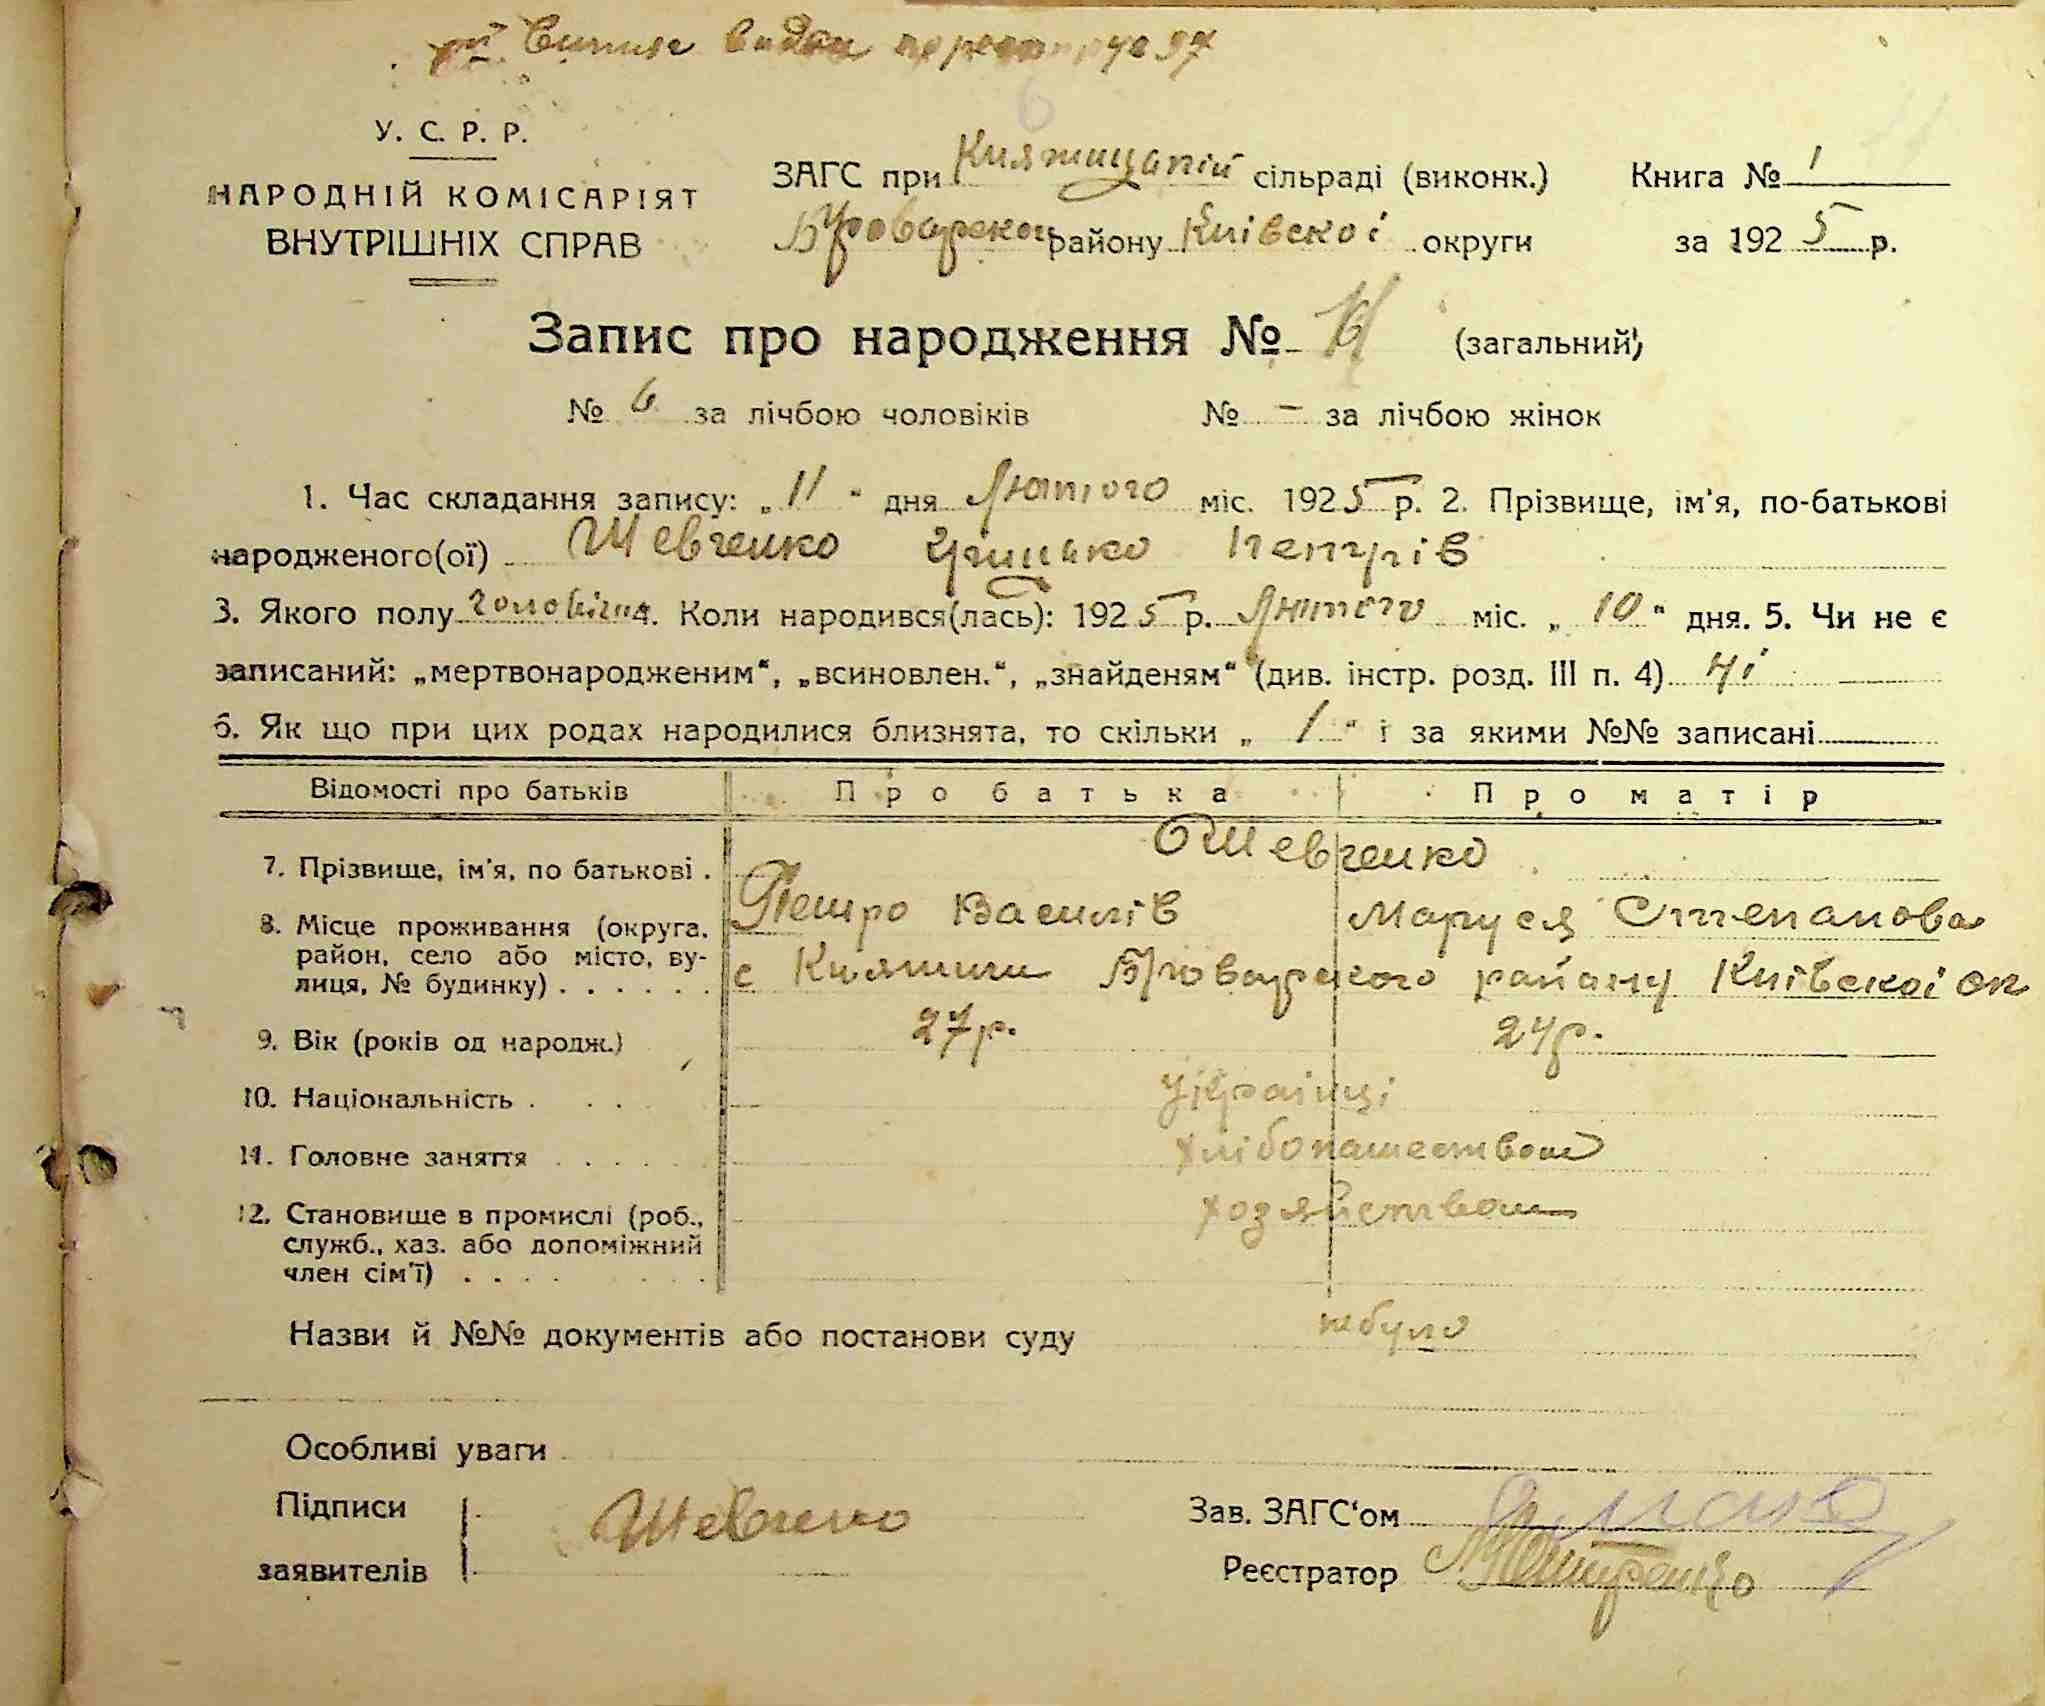 Випис видан
У. С. Р. Р.
НАРОДНІЙ КОМІСАРІЯТ
ВНУТРІШНІХ СПРАВ
ЗАГС при Княжицькій сільраді (виконк.) Книга № 1
Броварского району Київскоі округи за 1925 р.
Запис про народження № (загальний)
№ 6 за лічбою чоловіків № — за лічбою жінок
1. Час складання запису: „11“ дня Лютого міс. 1925 р. 2. Прізвище, ім'я, по-батькові
народженого(ої) Шевченко Грицько Петрів
3. Якого полу чоловіча 4. Коли народився(лась): 1925 р. Лютого міс. „10“ дня. 5. Чи не є
записаний: „мертвонародженим“, „всиновлен.“, „знайденям“ (див. інстр. розд. III п. 4) ні
6. Як що при цих родах народилися близнята, то скільки „ / “ і за якими №№ записані
Відомості про батьків Про батька Про матір
7. Прізвище, ім'я, по батькові . Шевченко
Петро Василів Маруся Степанова
8. Місце проживання (округа, район, село або місто, вулиця, № будинку) . . . . . . с Княжичи Броварского району Київскоі ок
9. Вік (років од народж.) 27 р. 24 р.
10. Національність . . . . Українці
11. Головне заняття . . . . . хлібопашеством
12. Становище в промислі (роб., служб., хаз. або допоміжний член сім'ї) . . . . хозяйством
Назви й №№ документів або постанови суду небуло
Особливі уваги
Підписи Шевченко Зав. ЗАГС'ом
заявителів Реєстратор